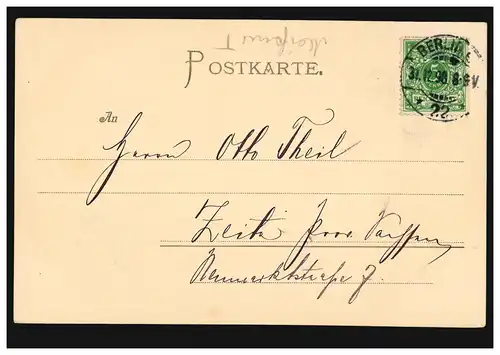 POSTKARTE.
BERLIN
31.12.98. 8-9V.
* 22
An
Herrn Otto Theil
Zeitz Prov. Sachsen,
Neumarktstraße 7.